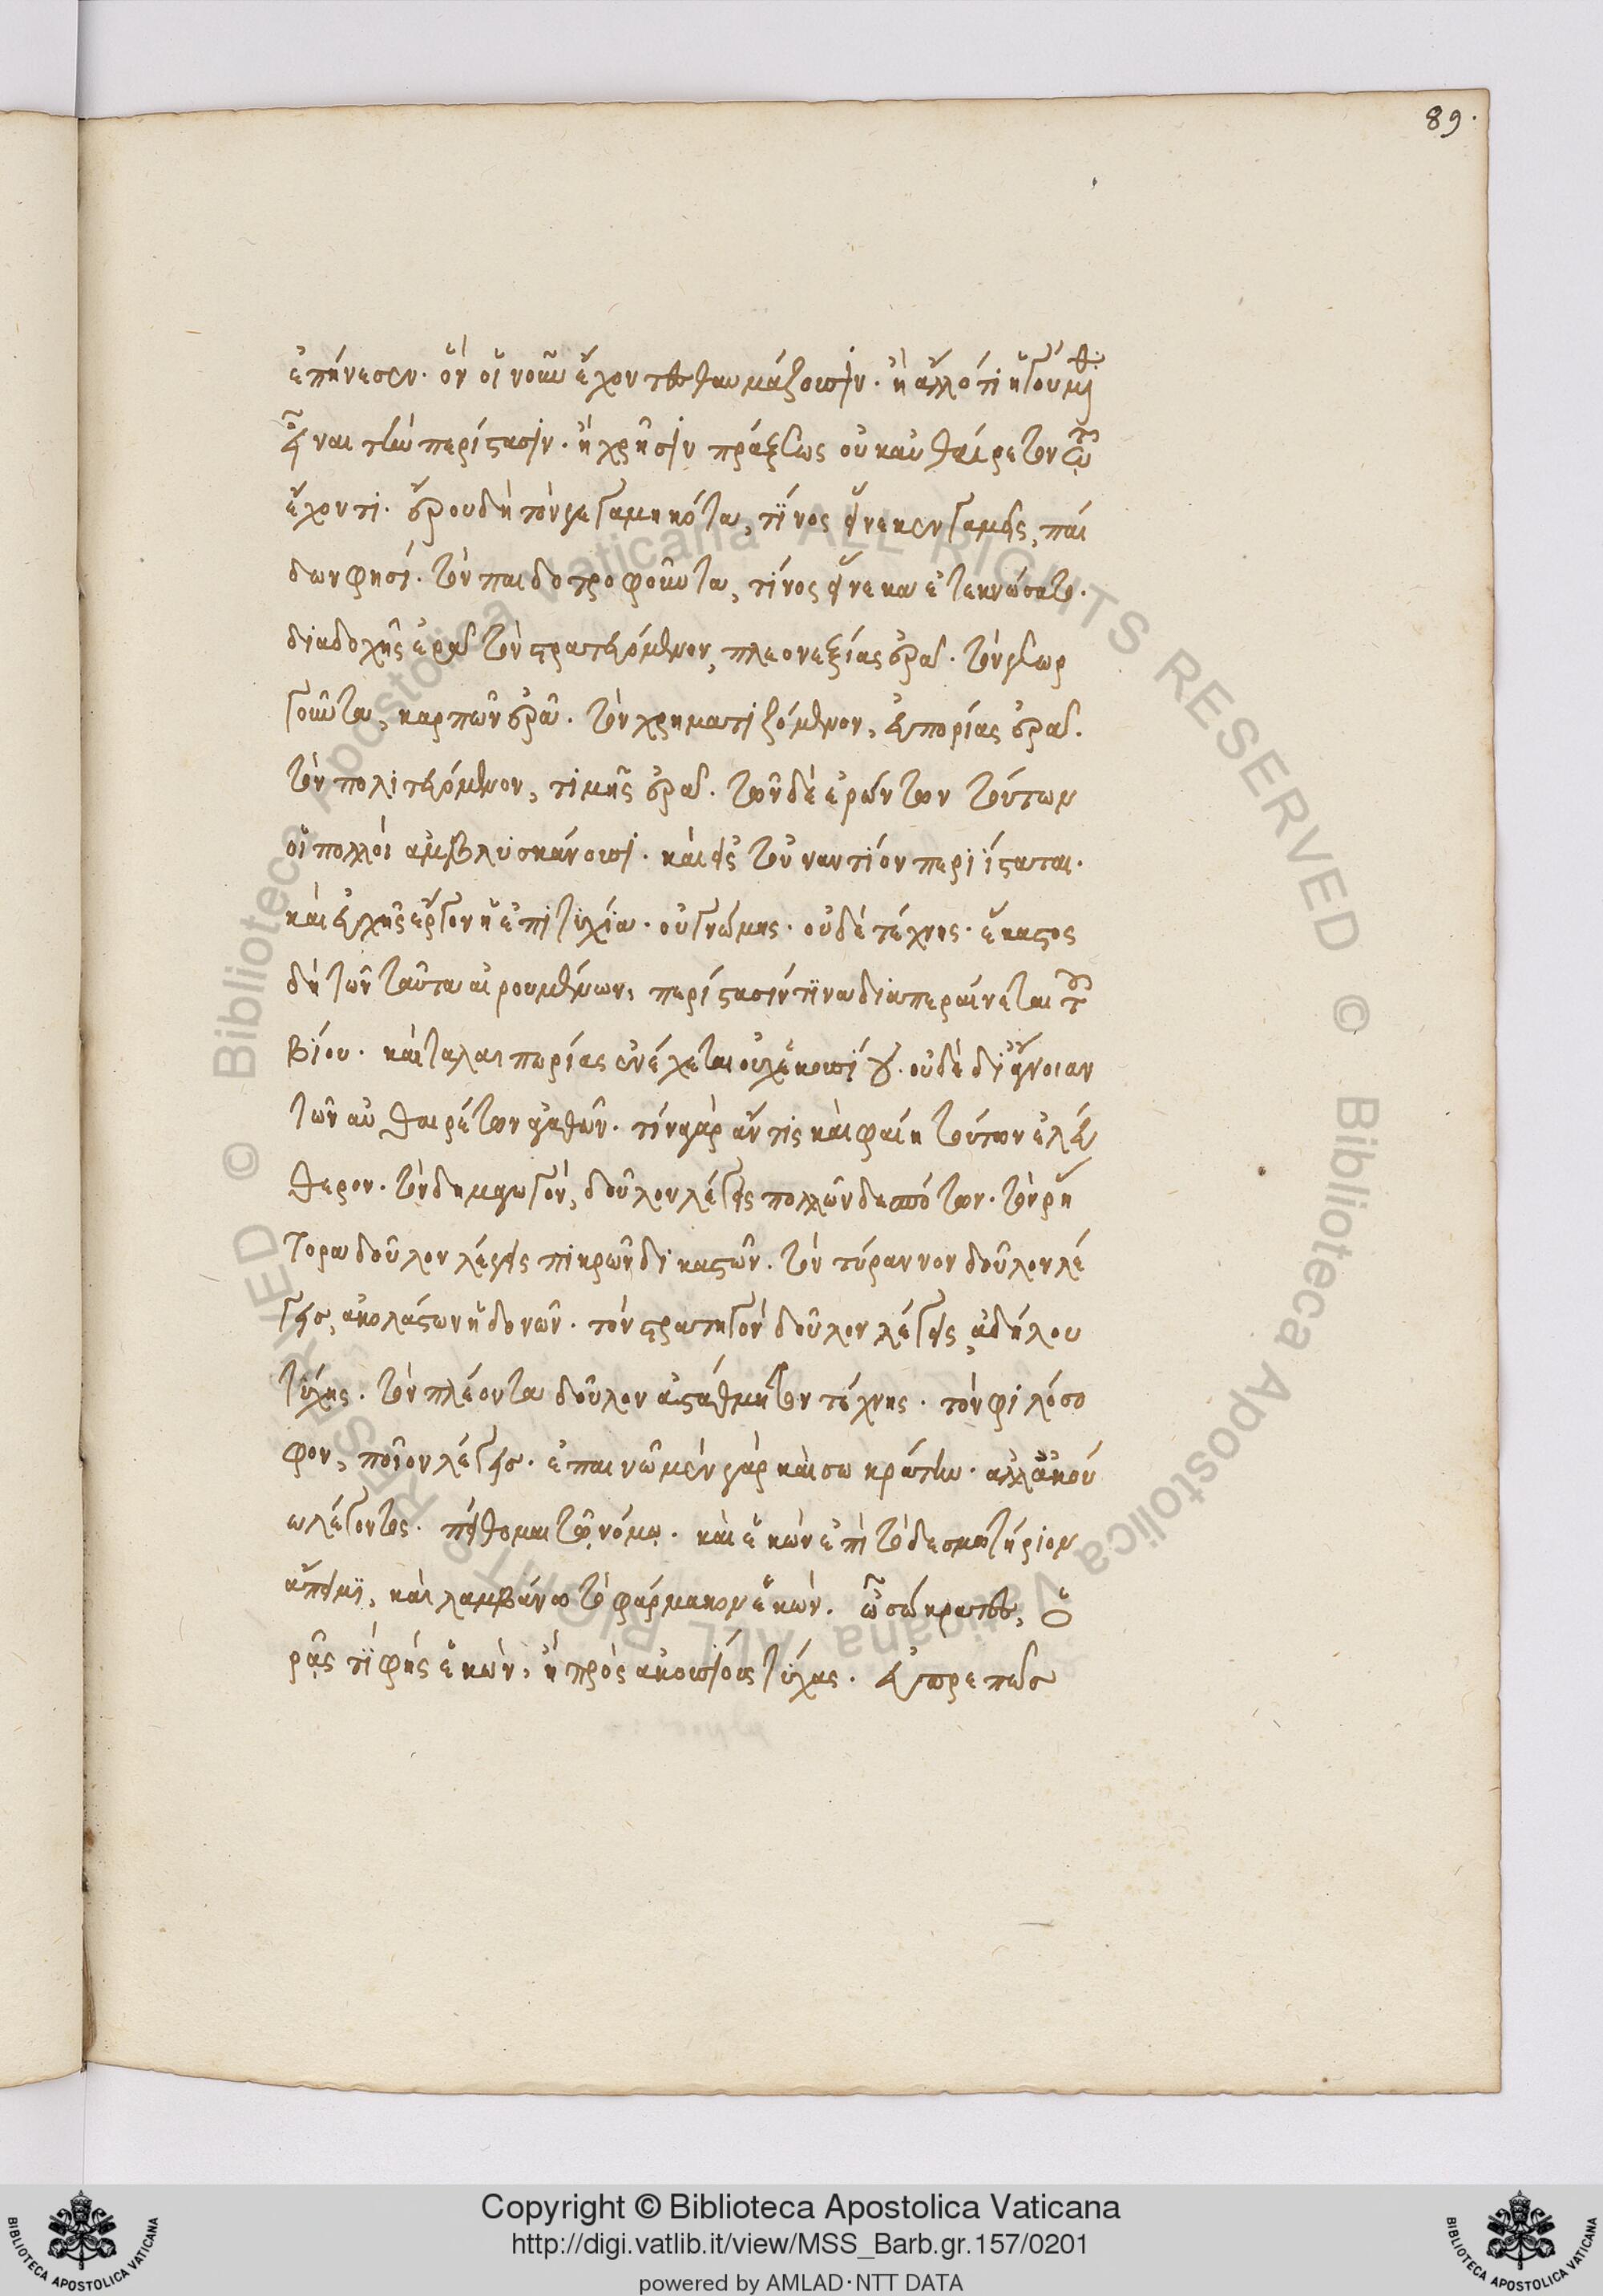 89.
ἐπήνεσεν. ὃν οἱ νοῦν ἔχοντες θαυμάζουσιν. ἢ ἄλλό τι ἡγούμεθα
εἶναι τὴν περίστασιν. ἢ χρῆσιν πράξεως οὐκ αὐθαίρετον τῷ
ἔχοντι. ἐροῦ δὴ τόν γε γαμηκότα, τίνος ἕνεκεν γαμεῖς, παί
δων φησί. τὸν παιδοτροφοῦντα, τίνος ἕνεκα ἐτεκνώσατο.
διαδοχῆς ἐρᾷ τὸν στρατευόμενον, πλεονεξίας ἐρᾷ. τὸν γεωρ
γοῦντα, καρπῶν ἐρᾷ. τὸν χρηματιζόμενον, εὐπορίας ἐρᾷ.
τὸν πολιτευόμενον, τιμῆς ἐρᾷ. τῶν δὲ ἐρώντων τούτων
οἱ πολλοὶ ἀμβλυσκάνουσι. καὶ εἰς τοὐναντίον περιίσταται.
καὶ εὐχῆς ἔργον ἡ ἐπιτυχία. οὐ γνώμης. οὐδὲ τέχνης. ἕκαστος
δὴ τῶν ταῦτα αἱρουμένων, περίστασίν τινα διαπεραίνεται τοῦ
βίου. καὶ ταλαιπωρίας ἀνέχεται οὐχ ἑκουσίου. οὐδὲ δι' ἄγνοιαν
τῶν αὐθαιρέτων ἀγαθῶν. τίν γὰρ ἄν τις καὶ φαίη τούτων ἐλεύ
θερον. τὸν δημαγωγὸν, δοῦλον λέγεις πολλῶν δεσποτῶν. τὸν ῥή
τορα δοῦλον λέγεις πικρῶν δικαστῶν. τὸν τύραννον δοῦλον λέ
γεις, ἀκολάστων ἡδονῶν. τὸν στρατηγὸν δοῦλον λέγεις, ἀδήλου
τύχης. τὸν πλέοντα δοῦλον ἀσταθμήτου τέχνης. τὸν φιλόσο
φον, ποῖον λέγεις. ἐπαινῶ μὲν γὰρ καὶ σωκράτην. ἀλλ' ἀκού
ω λέγοντος. πείθομαι τῷ νόμῳ. καὶ ἑκὼν ἐπὶ τὸ δεσμωτήριον
ἄπειμι, καὶ λαμβάνω τὸ φάρμακον ἑκών. ὦ σώκρατες, ὁ
ρᾷς τί φής ἑκὼν, ἢ πρὸς ἀκουσίους τύχας. εὐπρεπῶς
Copyright © Biblioteca Apostolica Vaticana
http://digi.vatlib.it/view/MSS_Barb.gr.157/0201
powered by AMLAD·NTT DATA